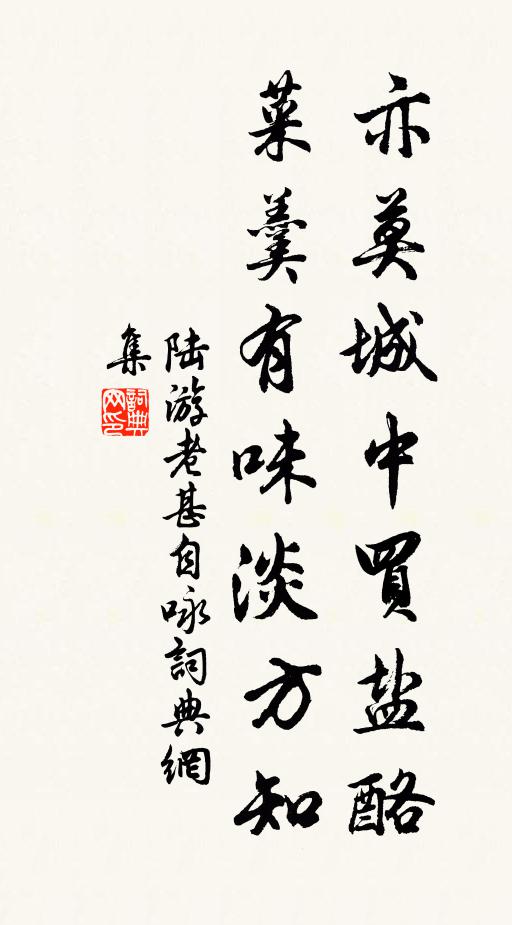 亦莫城中買盐酪
菜羹有味淡方知
陆游老甚自咏詞典網
集
詞典网印